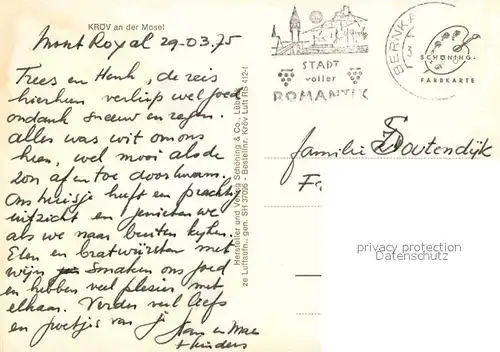 KRÖV an der Mosel
Mont Royal 29-03.75
Trees en Henk, de reis
hierheen verliep wel goed
ondank sneeuw en regen.
alles was wit om ons
heen, wel mooi als de
zon af en toe doorkwam.
Ons huisje heeft een prachtig
uitzicht en genieten we
als we naar buiten kijken.
Eten en bratwürsten met
wijn smaken ons goed
en hebben veel plezier met
elkaar. Verder veel liefs
en groetjes van
+ kinders
Hersteller und Verlag Schöning & Co., Lübeck
ze Luftaufn., gen. SH 37/96 - Bestellnr. Kröv Luft RS 412-f
STADT
voller
ROMANTIK
BERNKA
SCHÖNING
FARBKARTE
familie Zoutendijk
privacy protection
Datenschutz